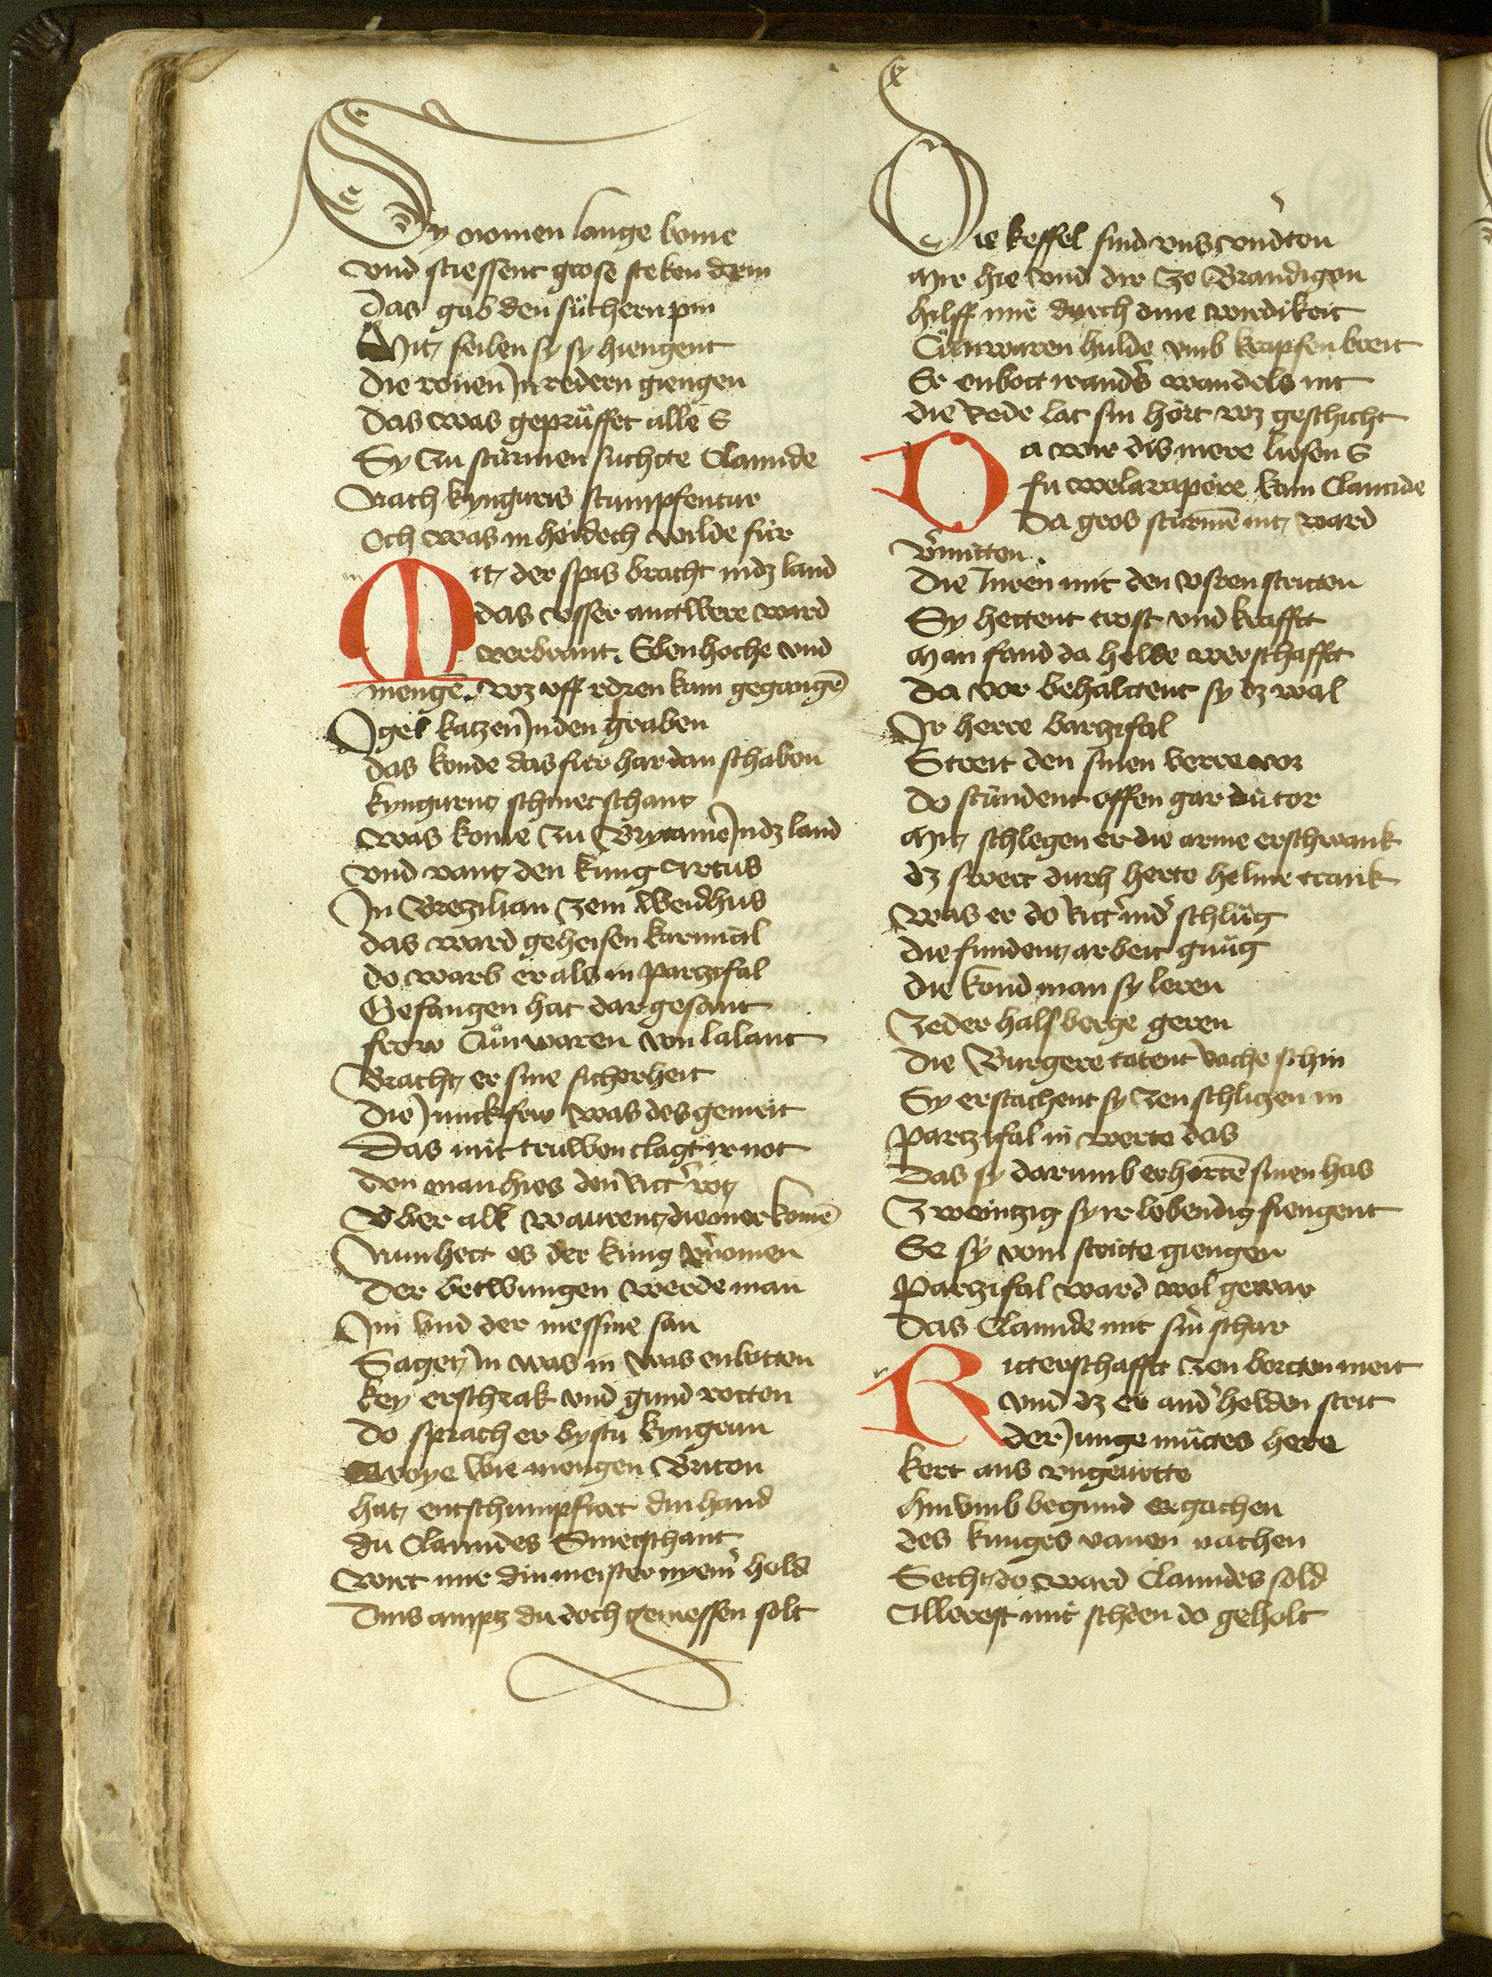 Sy nomen lange bome
vnd stiessent grose steken drin
Das gab den süchern pin
Mit seilen sy sy hiengent
Die ronen in redern giengen
Das was geprüffet alle E
Sy zu sturmen suchtte Clamide
Nach kyngruns stumpfentur
Och was in heidesch wilde für
Mit der spis bracht in dz land
das vsser antwere ward
verbrant. Ebenhoche vnd
mengē. wz vff redren kam gegangē
Igel katzen in den graben
das konde das für hardan schaben
kyngrunt schinetschant
Was kome zu Brytanie in dz land
vnd vant den kung Artus
In Brezilian zem weidhus
das ward geheisen karminal
do warb er als in partzifal
Gefangen hat dar gesant
frow Cunwaren von lalant
Bracht er sine sicherheit
Die Junckfrow was des gemeit
Das mit truwen clagt ir not
den man hies den Ritt' rot
Vber all warent die mer komē
Nun hett es der kung v'nomen
Der betwungen werde man
Im vnd der messine san
Saget in was in was enbotten
key erschrak vnd gund rotten
Do sprach er bystu kyngrun
Avoye wie mengen Briton
hat entschumpfiert din hand
du Clamides Sinetschant
Wirt mir din meister nyem' hold
Dins amptz du doch geniessen solt
Die kessel sind vns vnd'ton
Mir hie vnd dir ze Brandigan
hilff mir durch dine wirdikeit
Cunwaren hulde vmb krapfen breit
Er enbott ir and's wandels nit
die Rede lat sin hört wz geschicht
Da wir dis mere liesen E
fu welarapere kam Clamide
Da gros sturmē nit ward
v'mitten.
Die Inren mit den vsren stritten
Sy hettent trost vnd krafft
Man fand da helde werschafft
Da vor behalttent sy dz wal
Ir herre bartzifal
Streit den sinen verre vor
Do stundent offen gar die tor
Mit schlegen er die arme erschwank
dz swert durch herte helme trank
Was er do Ritt' nid' schlug
die fundent arbeit gnug
die kond man sy leren
Zeder halsberge geren
Die Burgere tatent rache schin
Sy erstachent sy zen schlitzen in
Partzifal in werte das
Das sy darumb erhortē sinen has
Zweintzig sy ir lebendig fiengent
Ee sy vom stritte giengen
Partzifal ward wol gewar
Das Clamide mit sin' schar
Ritterschafft zen bortten meit
vnd dz er and' helden streit
der Junge muttes here
kert ans vngeuerte
hin vmb begund er gachen
des kunges vanen nachen
Secht do ward Clamides sold
Allererst mit schden do geholt